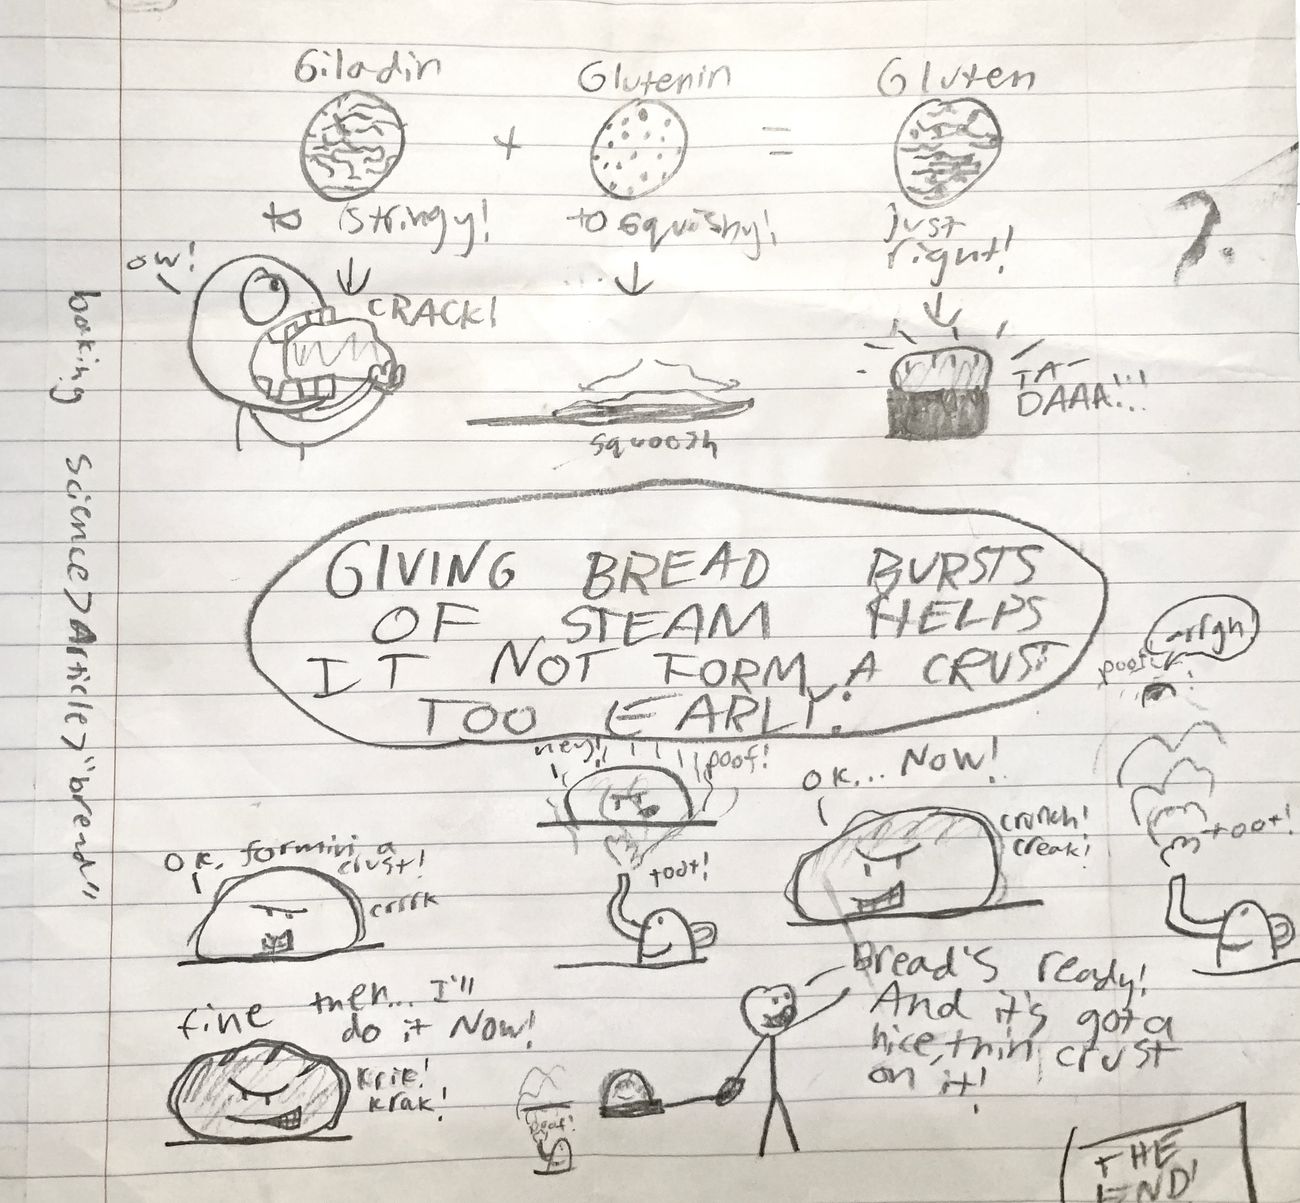 Giladin + Glutenin = Gluten
to stringy!
to squishy!
just
right!
?
ow!
CRACK!
squoosh
TA-
DAAA!!!
baking science>Article>"bread"
GIVING BREAD BURSTS
OF STEAM HELPS
IT NOT FORM A CRUST
TOO EARLY.
OK, formin a
crust!
crrrk
hey!
poof!
toot!
OK... NOW!
crunch!
creak!
arrgh
poof!
toot!
fine then... I'll
do it NOW!
krik!
krak!
poof!
Bread's ready!
And it's got a
nice, thin crust
on it!
THE
END!